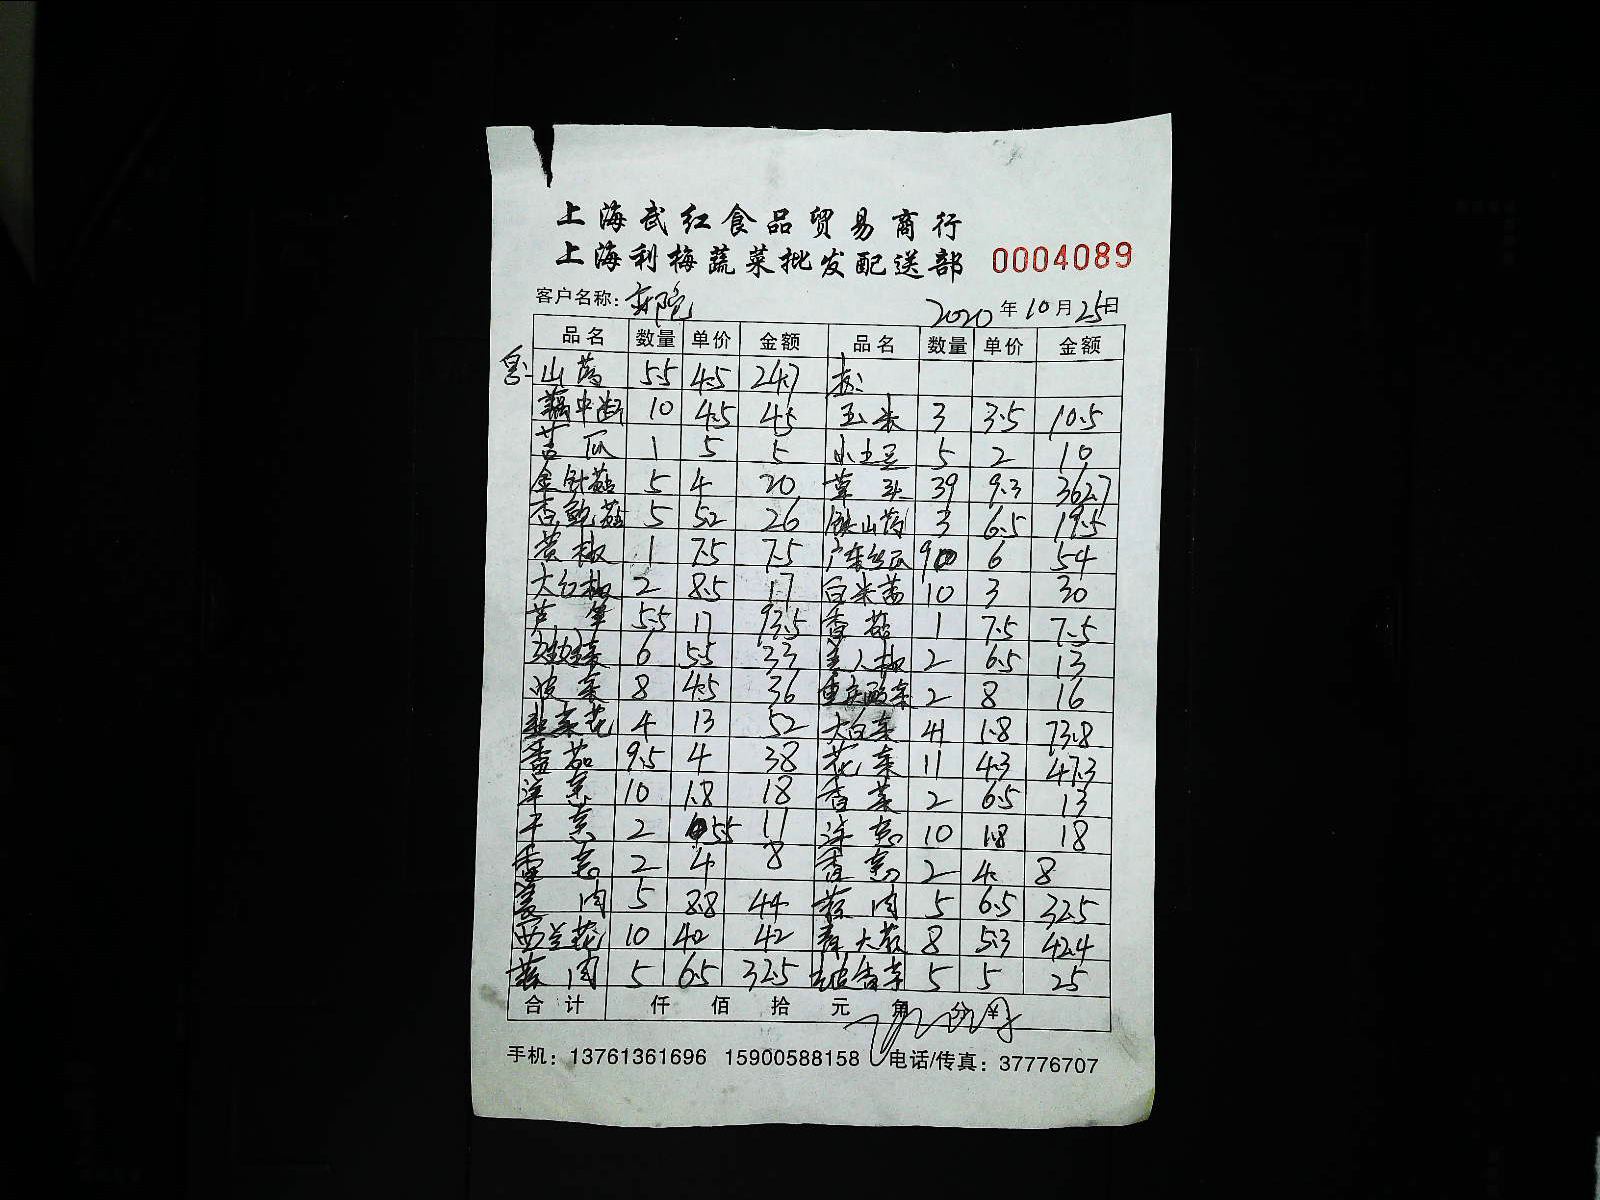 上海武红食品贸易商行
上海利梅蔬菜批发配送部 0004089
客户名称: 2020年10月25日
品名 数量 单价 金额 品名 数量 单价 金额
山药 5.5 4.5 24.7
藕中断 10 4.5 45 玉米 3 3.5 10.5
苦瓜 1 5 5 小土豆 5 2 10
金针菇 5 4 20 草头 39 9.3 362.7
杏鲍菇 5 5.2 26 铁山药 3 6.5 19.5
黄椒 1 7.5 7.5 广东丝瓜 9 6 54
大红椒 2 8.5 17 白米苋 10 3 30
芦笋 5.5 17 93.5 香菇 1 7.5 7.5
6 5.5 33 美人椒 2 6.5 13
菠菜 8 4.5 36 重庆酸菜 2 8 16
韭菜花 4 13 52 大白菜 41 1.8 73.8
香茄 9.5 4 38 花菜 11 4.3 47.3
洋葱 10 1.8 18 香菜 2 6.5 13
干葱 2 5.5 11 洋葱 10 1.8 18
香葱 2 4 8 香葱 2 4 8
姜肉 5 8.8 44 蒜肉 5 6.5 32.5
西兰花 10 4.2 42 青大蒜 8 5.3 42.4
蒜肉 5 6.5 32.5 5 5 25
合计 仟 佰 拾 元 角 分 ¥
手机: 13761361696 15900588158 电话/传真: 37776707